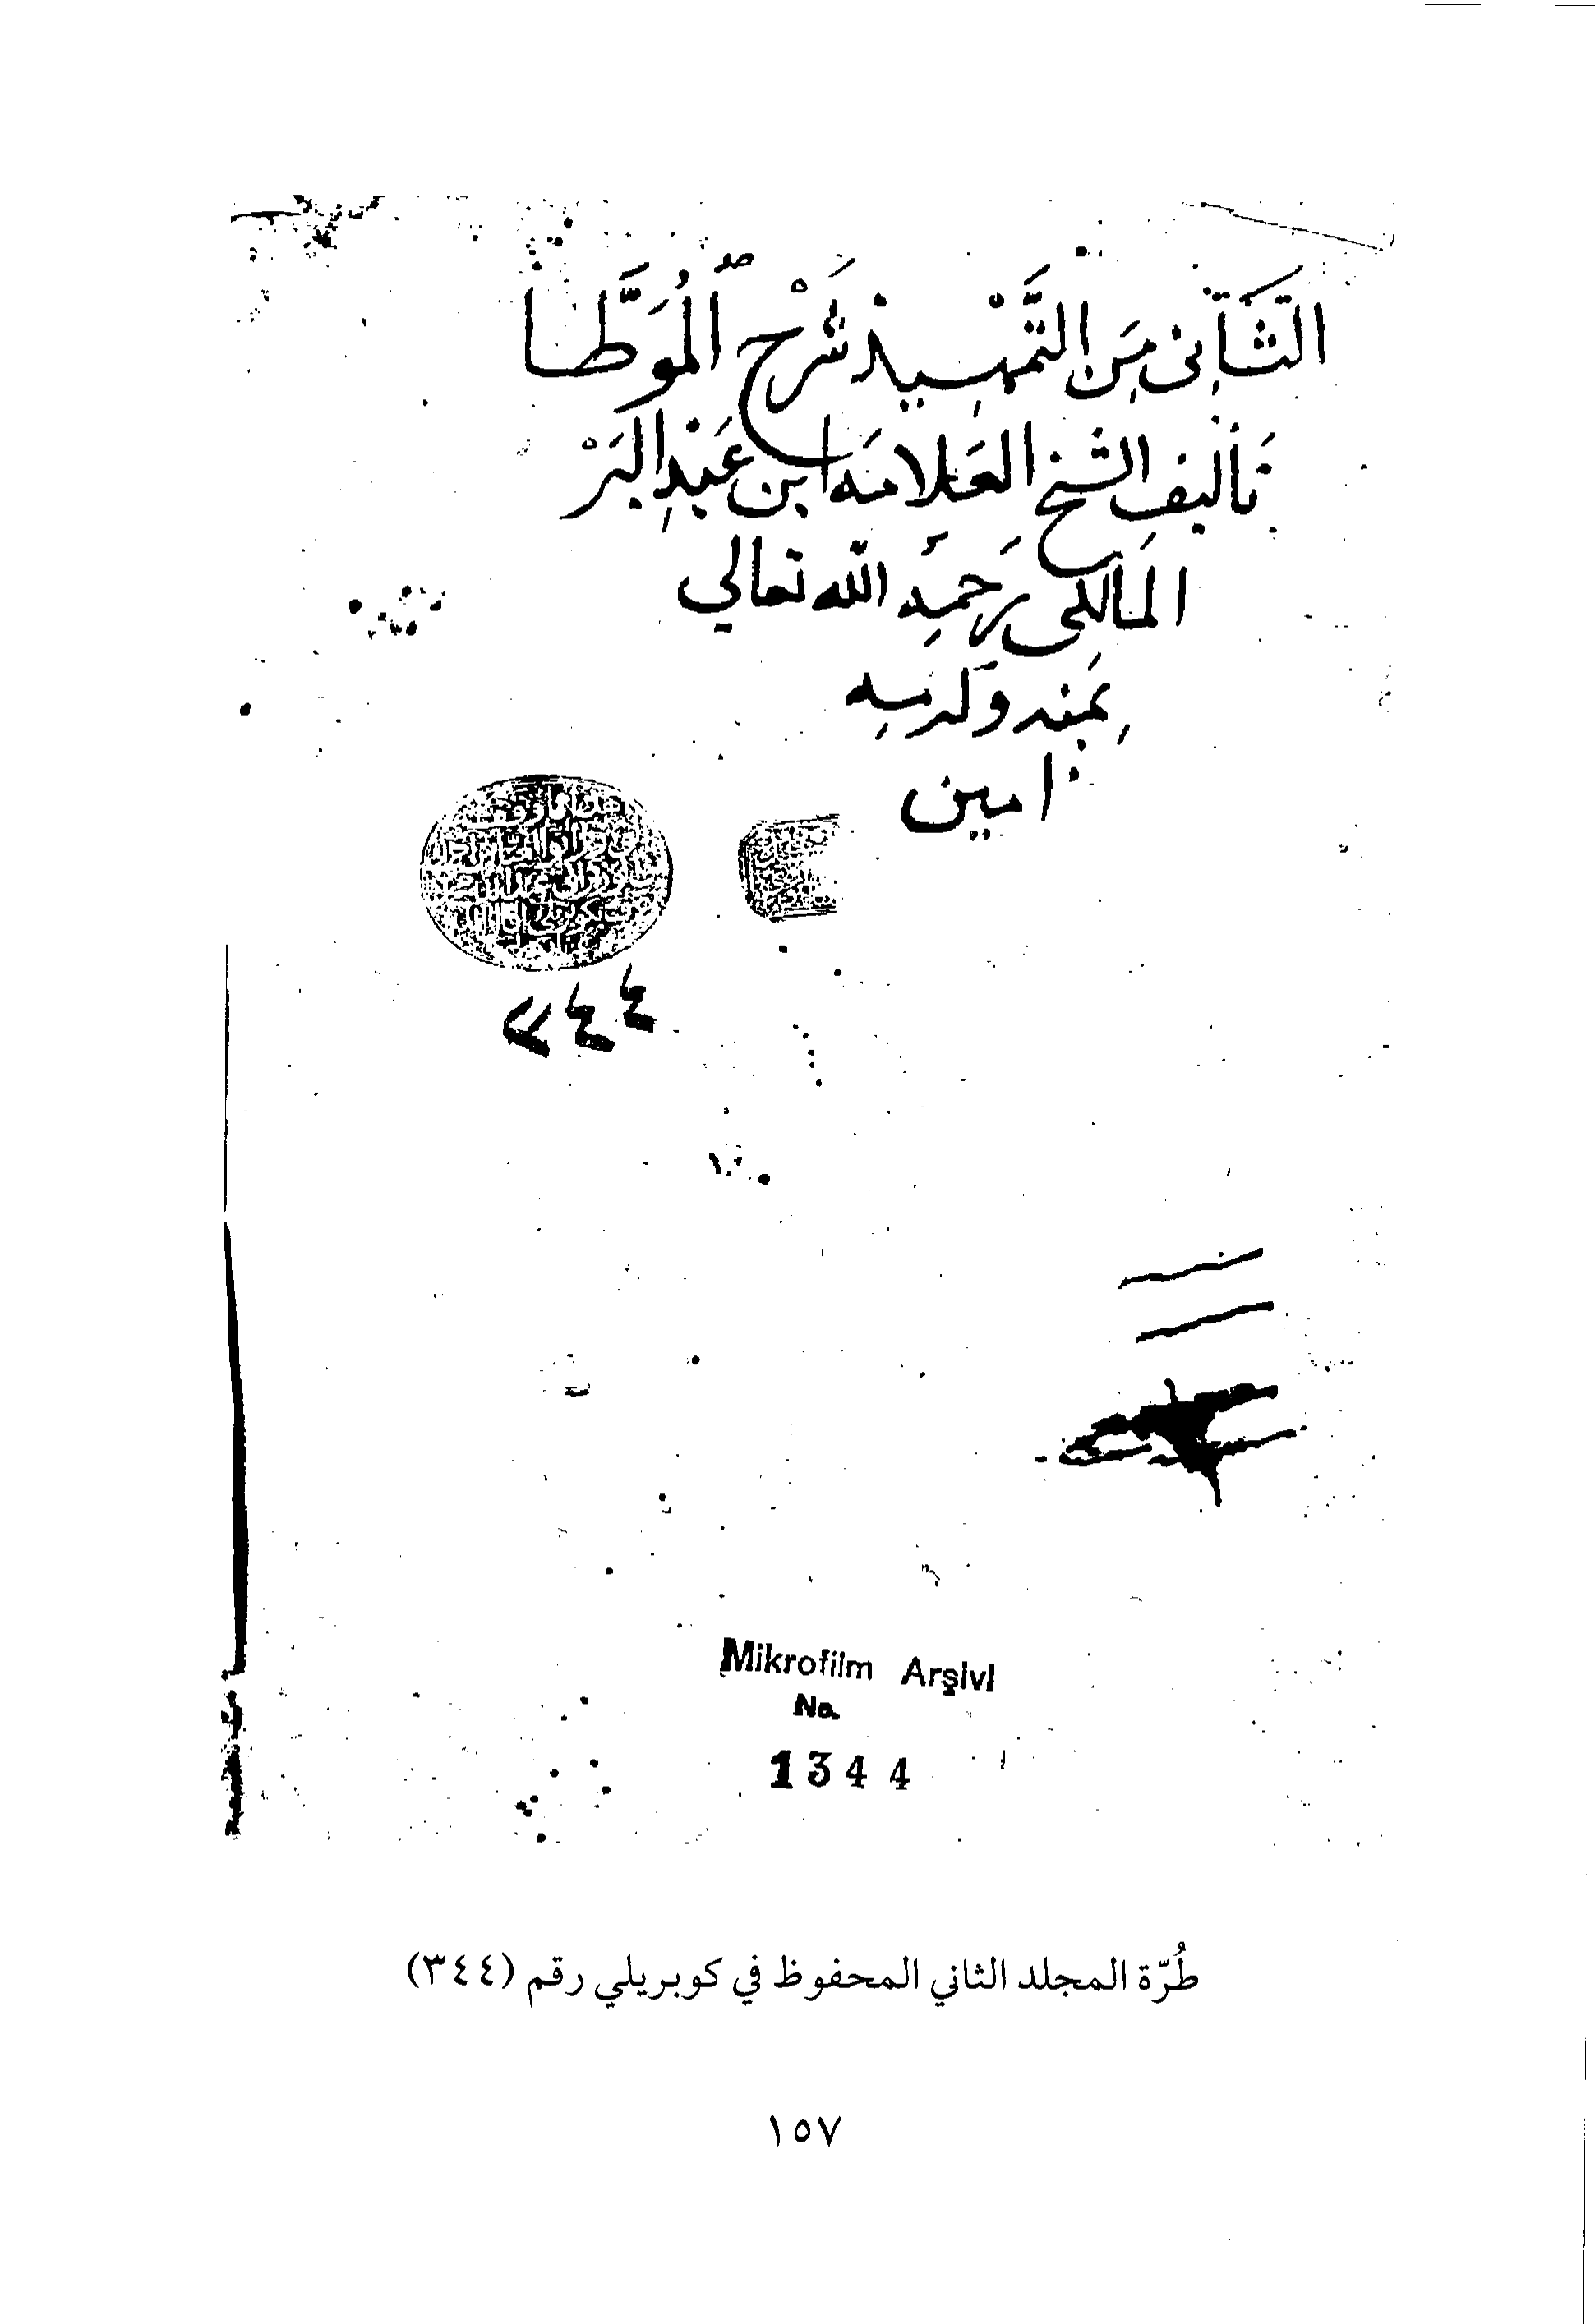 الثَّانِى مِنَ التَّمْهِيد شَرْح المُوَطَّا
تَأليفِ الشيخ العَلامَه ابن عَبْدِ البَرْ
المَالكى رَحمِه الله تعالي
بمَنه وكرمِه
امين
هذا ما وقفه
٣٤٤
Mikrofilm Arşivi
No.
1344
طُرّة المجلد الثاني المحفوظ في كوبريلي رقم (٣٤٤)
١٥٧